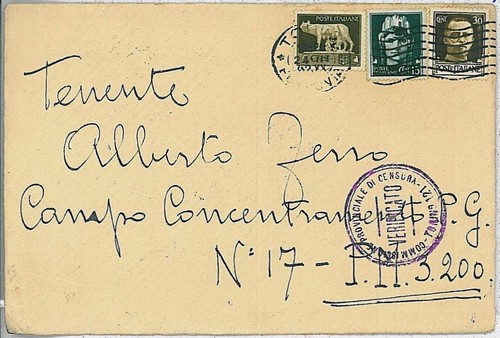 POSTE ITALIANE
POSTE ITALIANE CENT 15
CENT 30 POSTE ITALIANE
Tenente
Alberto Zerro
Campo Concentramento P.G.
N° 17 - P.M. 3.200.
COMMISSIONE PROVINCIALE DI CENSURA
VERIFICATO